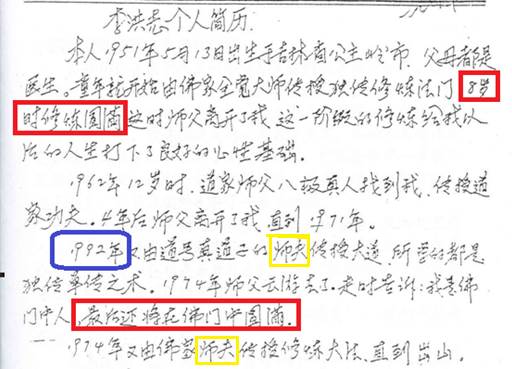 李洪志个人简历.
本人1951年5月13日出生于吉林省公主岭市.父母都是
医生。童年就开始由佛家全觉大师传授独传修炼法门8岁
时修炼圆满这时师父离开了我这一阶段的修炼给我以
后的人生打下了良好的心性基础.
1962年12岁时.道家师父八极真人找到我.传授道
家功夫.4年后师父离开了我.直到1971年.
1992年又由道号真道子的师夫传授大道.所学的都是
独传单传之术.1974年师父云游去了.走时告诉:我是佛
门中人.最后还将在佛门中圆满.
1974年又由佛家师夫传授修炼大法.直到出山.